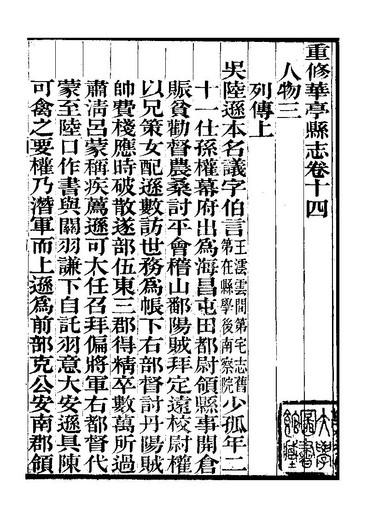 重修華亭縣志卷十四
人物三
列傳上
吳陸遜本名議字伯言王澐雲間第宅志舊第在縣學後南察院少孤年二
十一仕孫權幕府出爲海昌屯田都尉領縣事開倉
賑貧勸督農桑討平會稽山鄱陽賊拜定遠校尉權
以兄策女配遜數訪世務爲帳下右部督討丹陽賊
帥費棧應時破散遂部伍東三郡得精卒數萬所過
肅淸呂蒙稱疾薦遜可大任召拜偏將軍右都督代
蒙至陸口作書與關羽謙下自託羽意大安遜具陳
可禽之要權乃潛軍而上遜爲前部克公安南郡領